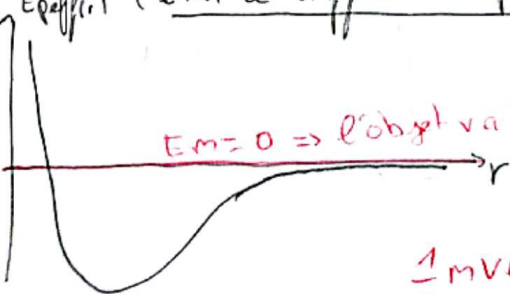 Epeff(r)
Em = 0 => l'objet va
r
1 m v